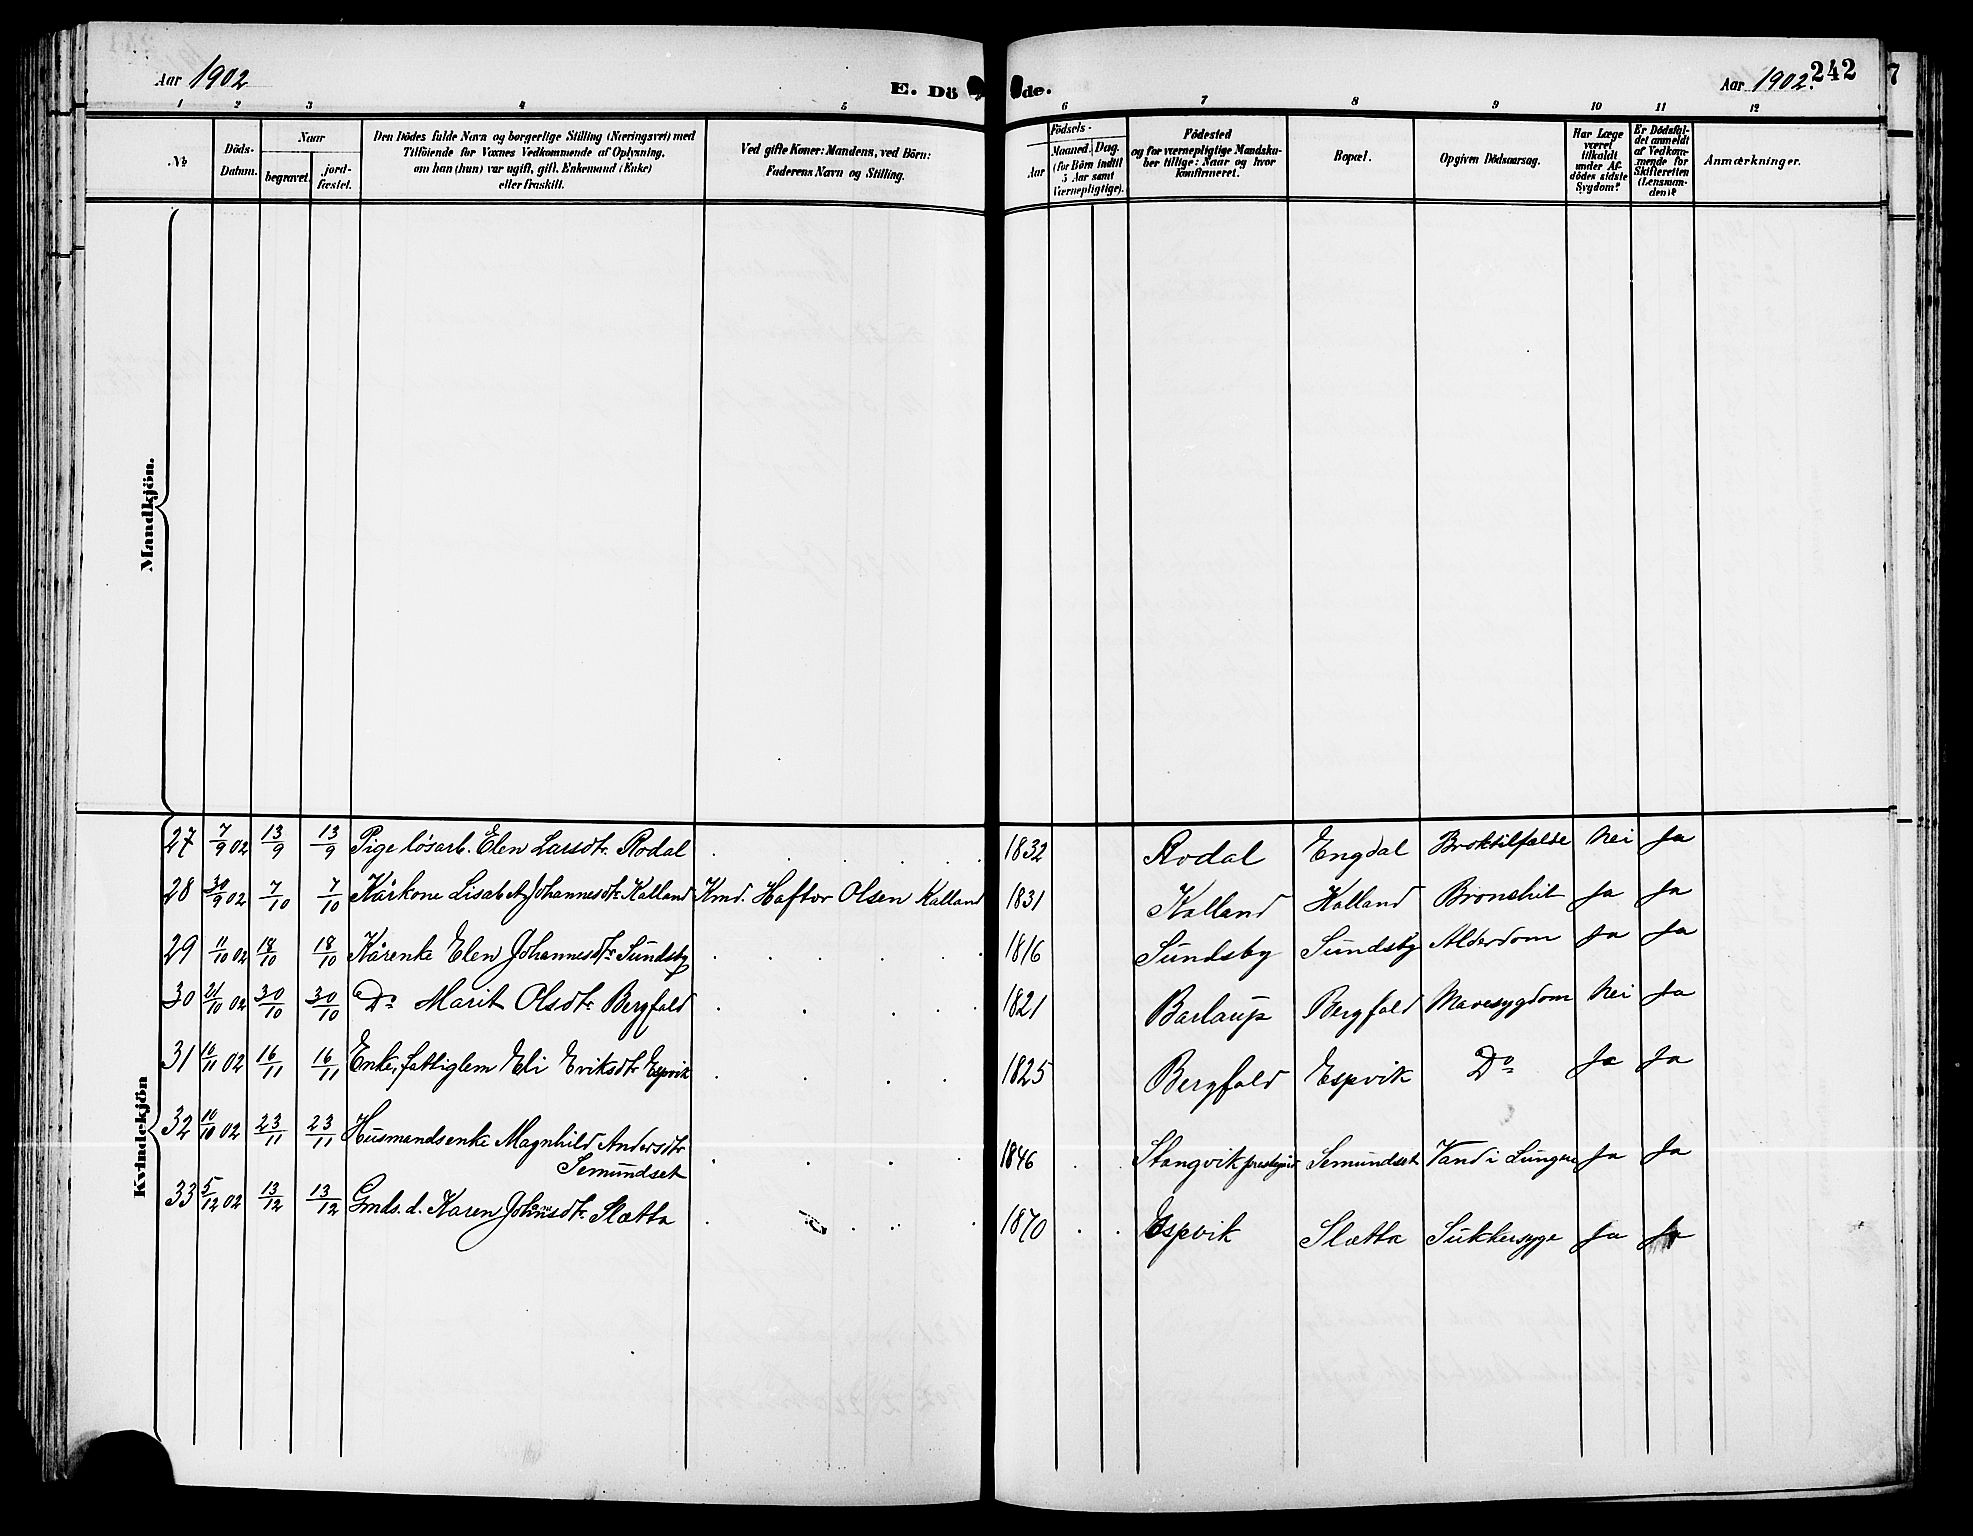 Aar 1902
E. Döde.
Aar 1902.
242
7
1 2 3 4 5 6 7 8 9 10 11 12
No
Döds-Datum.
Naar
begravet.
jord-fæstet.
Den Dödes fulde Navn og borgerlige Stilling (Næringsvei) med
Tilföiende for Voxnes Vedkommende af Oplysning,
om han (hun) var ugift, gift, Enkemand (Enke)
eller fraskilt.
Ved gifte Koner: Mandens, ved Börn:
Faderens Navn og Stilling.
Födsels-
Aar
Maaned. Dag.
(for Börn indtil
5 Aar samt
Værnepligtige).
Födested
og for værnepligtige Mandska-
ber tillige: Naar og hvor
konfirmeret.
Bopæl.
Opgiven Dödsaarsag.
Har Læge
været
tilkaldt
under Af-
dödes sidste
Sygdom?
Er Dödsfal-
det anmeldt
af Vedkom-
mende for
Skifteretten
(Lensman-
den)?
Anmærkninger.
Mandkjön.
Kvindekjön
27 7/9 02 13/9 13/9 Pige lösarb. Elen Larsdtr. Rodal 1832 Rodal Engdal Broktilfælde Nei Ja
28 30/9 02 7/10 7/10 Kårkone Lisabet Johannesdtr Kalland Kmd. Haftor Olsen Kalland 1831 Kalland Kalland Bronchit Ja Ja
29 11/10 02 18/10 18/10 Kårenke Elen Johannesdtr Sundsby 1816 Sundsby Sundsby Alderdom Ja Ja
30 21/10 02 30/10 30/10 Do Marit Olsdtr Bergfald 1821 Barlaup Bergfald Mavesygdom Nei Ja
31 10/11 02 16/11 16/11 Enke, fattiglem Eli Eriksdtr Espvik 1825 Bergfald Espvik Do Ja Ja
32 10/10 02 23/11 23/11 Husmandsenke Magnhild Andersdtr
Semundset 1846 Stangvik prestegjd Semundset Vand i Lungen Ja Ja
33 5/12 02 13/12 13/12 Gmds. d. Karen Johnsdtr. Slætta 1870 Espvik Slætta Sukkersyge Ja Ja